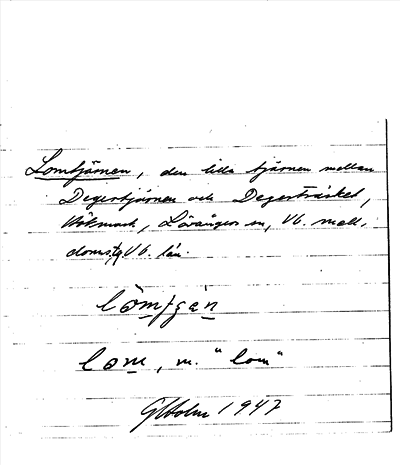 Lomtjärnen, den lilla tjärnen mellan
Degertjärnen och Degerträsket,
Bökmark, Lövångers sn, Vb. mell.
doms. tg. Vb. län.
lòmʃgàn
lom, m. "lom"
G Holm 1947